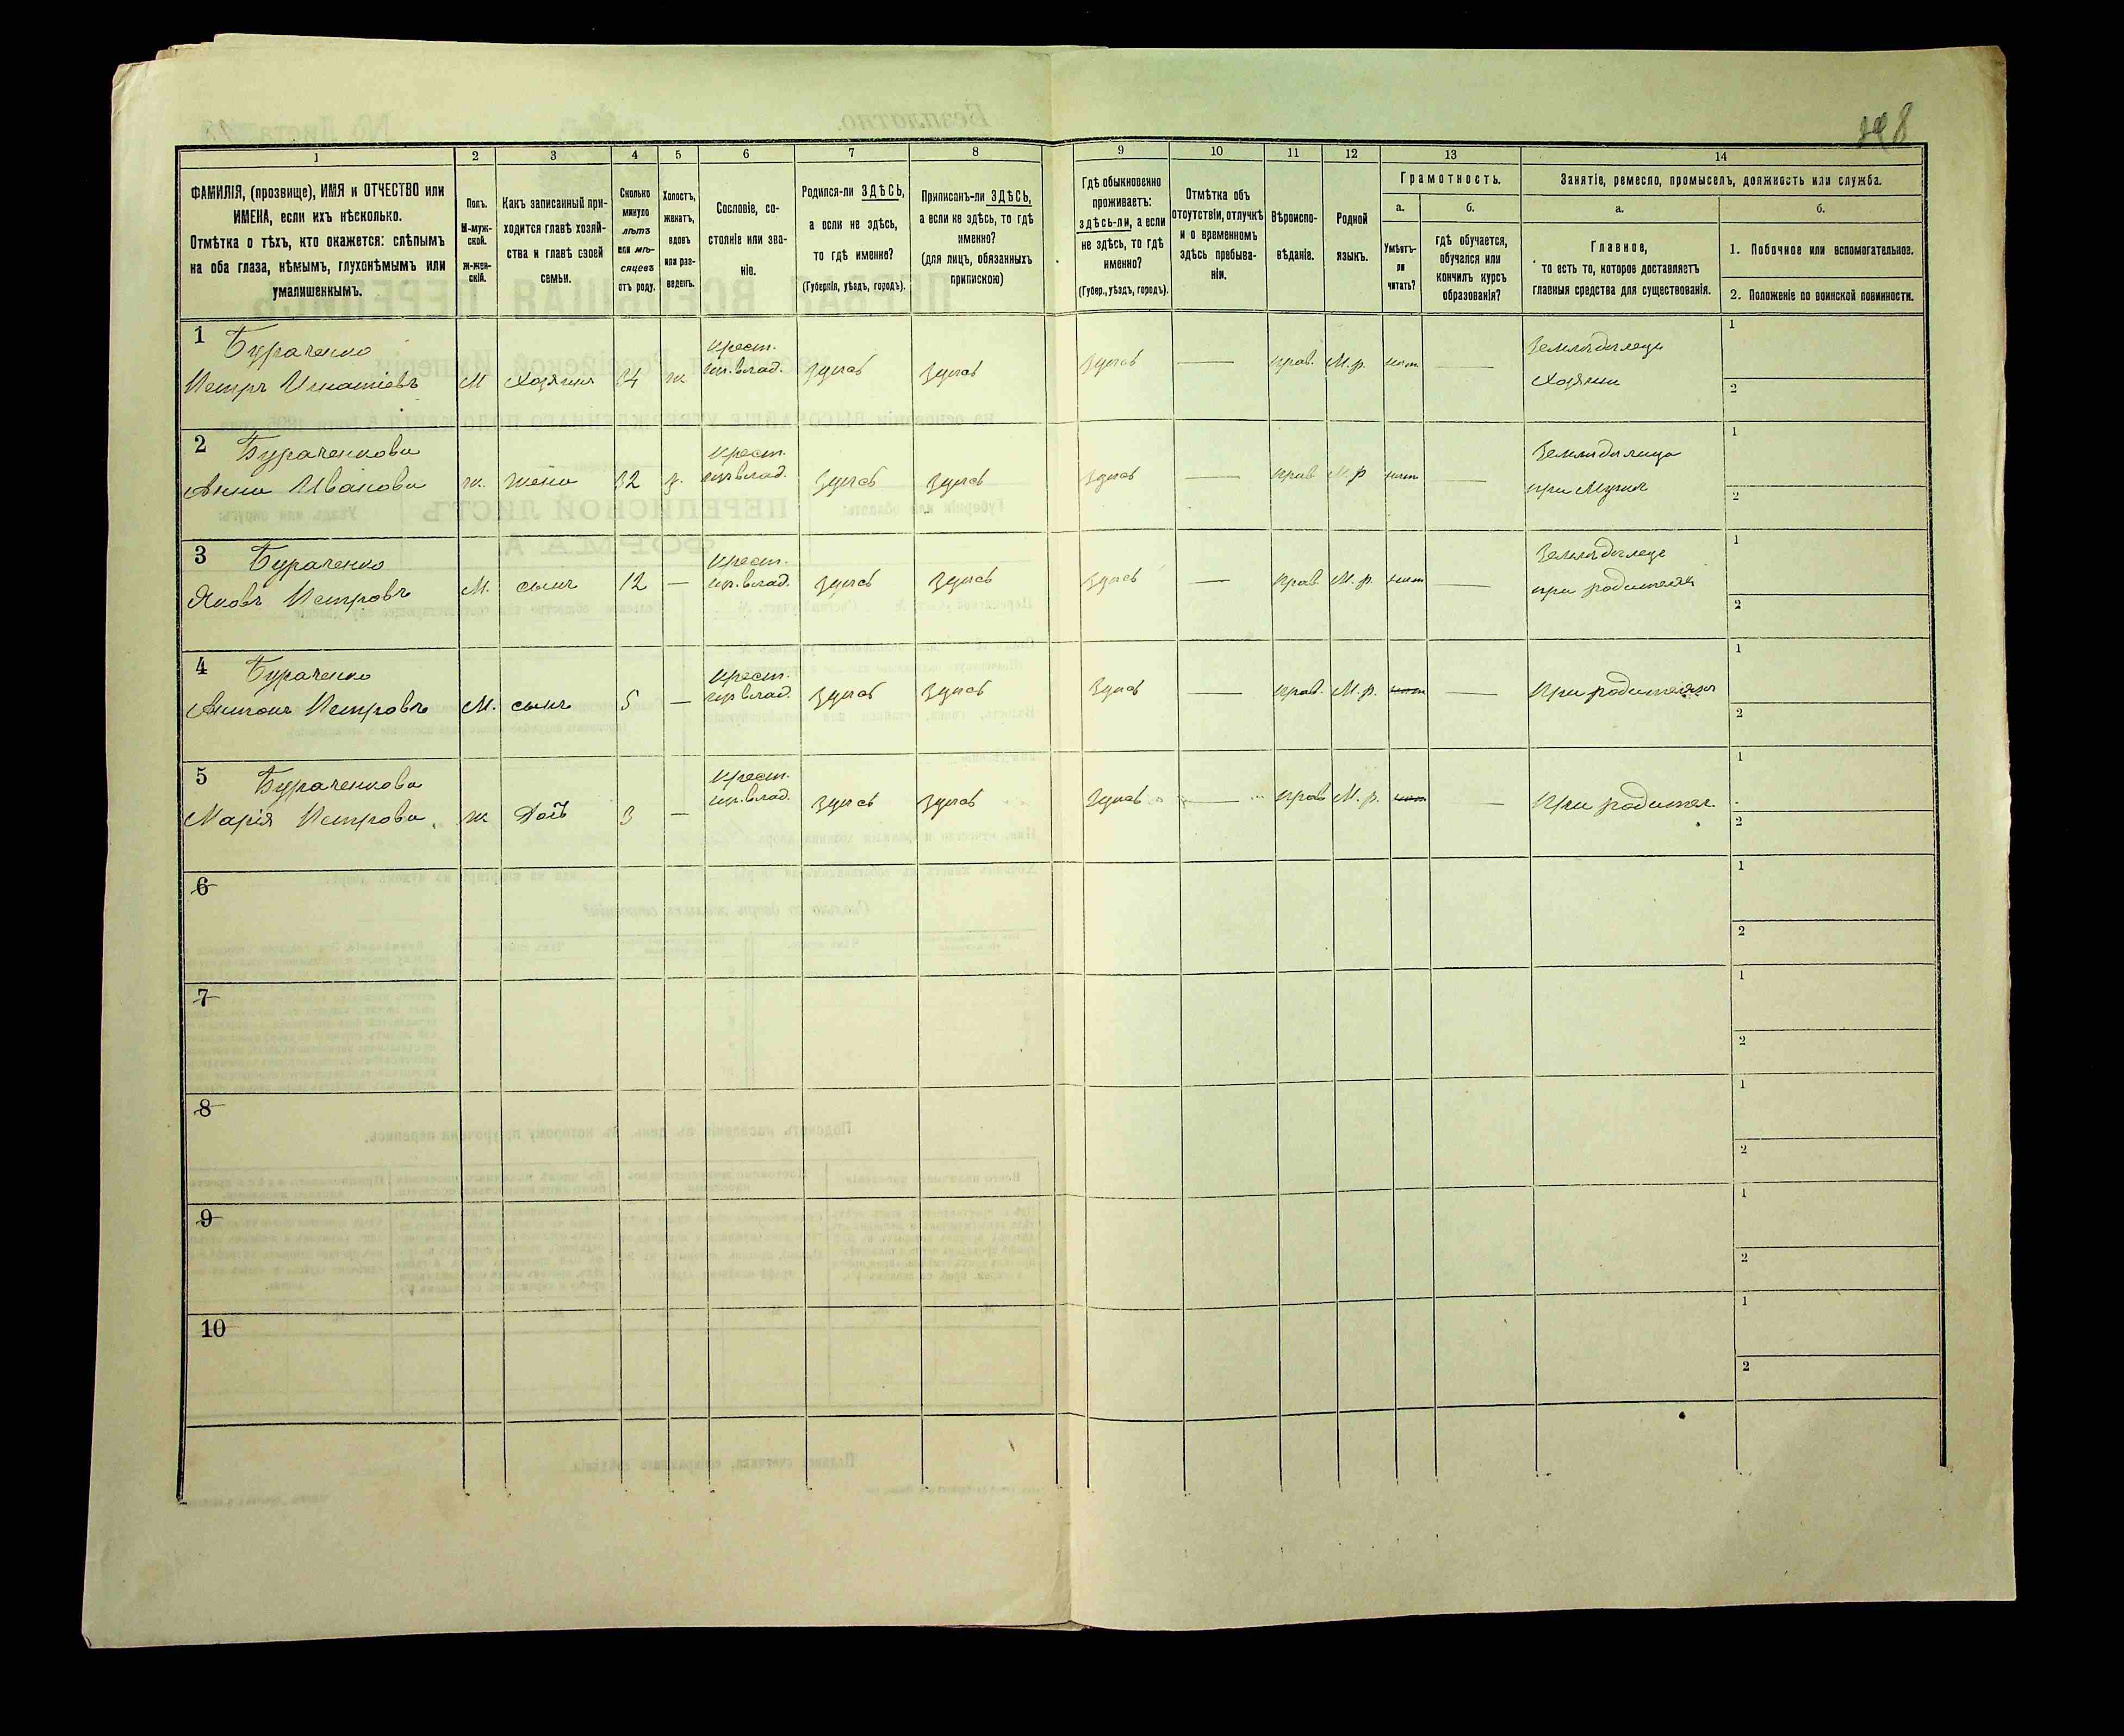 348
1
2
3
4
5
6
7
8
9
10
11
12
13
14
ФАМИЛІЯ, (прозвище), ИМЯ и ОТЧЕСТВО или
ИМЕНА, если ихъ нѣсколько.
Отмѣтка о тѣхъ, кто окажется: слѣпымъ
на оба глаза, нѣмымъ, глухонѣмымъ или
умалишеннымъ.
Полъ.
М-муж-
ской.
Ж-жен-
скій.
Какъ записанный при-
ходится главѣ хозяй-
ства и главѣ своей
семьи.
Сколько
минуло
лѣтъ
или мѣ-
сяцевъ
отъ роду.
Холостъ,
женатъ,
вдовъ
или раз-
веденъ.
Сословіе, со-
стояніе или зва-
ніе.
Родился-ли ЗДѢСЬ,
а если не здѣсь,
то гдѣ именно?
(Губернія, уѣздъ, городъ).
Приписанъ-ли ЗДѢСЬ,
а если не здѣсь, то гдѣ
именно?
(для лицъ, обязанныхъ
припискою)
Гдѣ обыкновенно
проживаетъ:
здѣсь-ли, а если
не здѣсь, то гдѣ
именно?
(Губер., уѣздъ, городъ).
Отмѣтка объ
отсутствіи, отлучкѣ
и о временномъ
здѣсь пребыва-
ніи.
Вѣроиспо-
вѣданіе.
Родной
языкъ.
Грамотность.
а.
Умѣетъ-
ли
читать?
б.
гдѣ обучается,
обучался или
кончилъ курсъ
образованія?
Занятіе, ремесло, промыселъ, должность или служба.
а.
Главное,
то есть то, которое доставляетъ
главныя средства для существованія.
б.
1. Побочное или вспомогательное.
2. Положеніе по воинской повинности.
1 Бураченко
Петръ Игнатіевъ М Хозяинъ 34 ж крест. Здѣсь Здѣсь Здѣсь — прав. М.р. нит — Земледѣлецъ
Хозяин
1
2
2 Бураченкова
Анна Иванова ж. жена 32 з. крест. Здѣсь Здѣсь Здѣсь — прав М.р — Земледѣлица
при Мужѣ
1
2
3 Бураченко
Яковъ Петровъ М. сынъ 12 — крест. Здѣсь Здѣсь Здѣсь — прав М.р. — Земледѣлец
при родителях
1
2
4 Бураченко
Антонъ Петровъ М. сынъ 5 — крест. Здѣсь Здѣсь Здѣсь — прав. М.р. — При родителяхъ
1
2
5 Бураченкова
Марія Петрова ж Доч 3 — крест. Здѣсь Здѣсь Здѣсь — прав М.р. — При родител
1
2
6
1
2
7
1
2
8
1
2
9
1
2
10
1
2